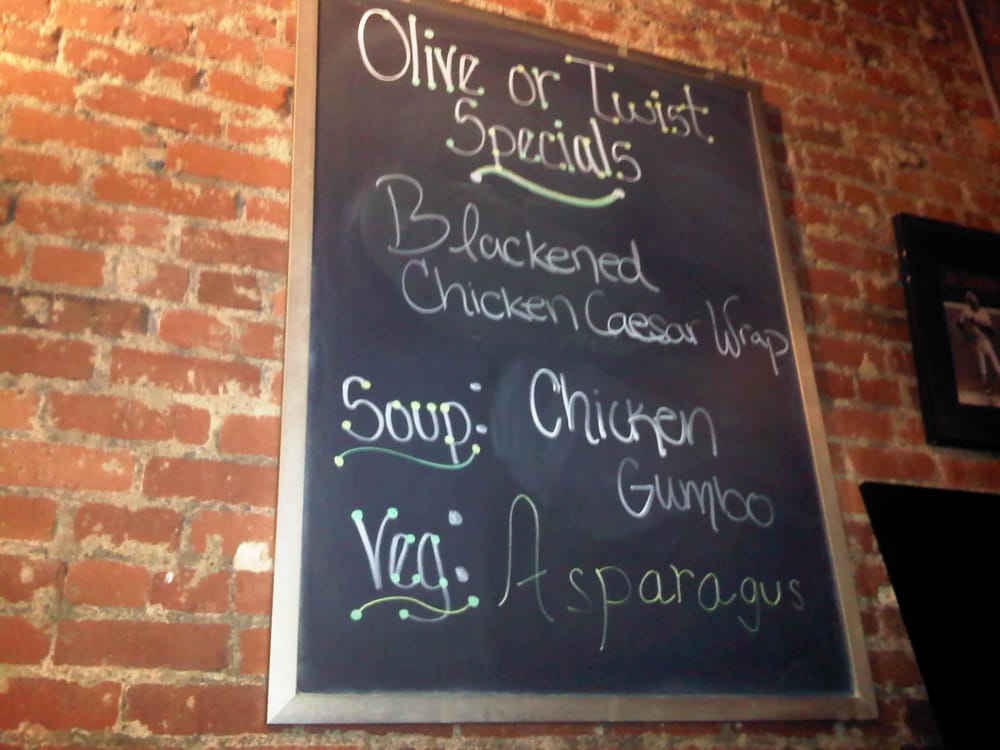 Olive or Twist
Specials
Blackened
Chicken Caesar Wrap
Soup: Chicken
Gumbo
Veg: Asparagus